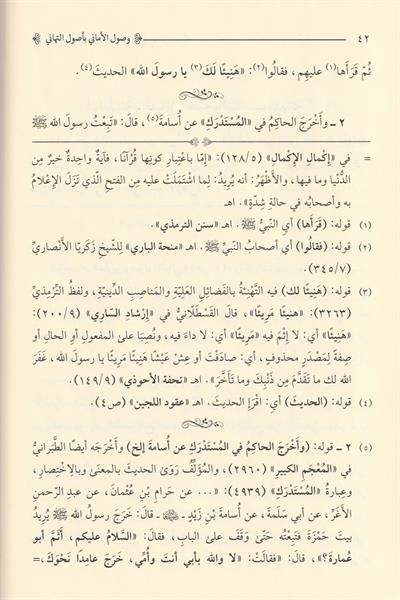 ٤٢ وصول الأماني بأصول التهاني
ثُمّ قرَأَها(١) عليهم، فقالُوا(٢): «هَنِيئًا لَكَ(٣) يا رسول الله» الحديثَ(٤).
٢ ـ وأَخْرَجَ الحاكِمُ في «المُسْتَدْرَكِ» عن أسامةَ(٥)، قالَ: «تَبِعْتُ رسولَ الله ﷺ
= في «إِكْمالِ الإِكْمالِ» (١٢٨/٥): «إمّا باعْتِبارِ كونِها قُرْآنًا، فآيةٌ واحِدةٌ خيرٌ مِن
الدُّنْيا وما فيها، والأَظْهَرُ: أنه يُرِيدُ: لِما اشْتَمَلَتْ عليه مِن الفتحِ الّذي نَزَلَ الإعْلامُ
به وأصحابُه في حالةِ شِدّةٍ». اهـ
(١) قوله: (قَرَأَها) أيِ النّبيُّ ﷺ. اهـ «سنن الترمذي».
(٢) قوله: (فقالُوا) أي أصحابُ النّبيِّ ﷺ. اهـ «منحة الباري» للشّيخِ زَكَرِيّا الأَنْصاريِّ
(٣٤٥/٧).
(٣) قوله: (هَنِيئًا لك) فيه التَّهْنِئةُ بالفَضائِلِ العَلِيّةِ والمَناصِبِ الدِّينيّةِ، ولفظُ التّرْمِذيِّ
(٣٢٦٣): «هنيئًا مَرِيئًا»، قالَ القَسْطَلّانيُّ في «إِرْشادِ السّارِي» (٢٠٠/٩):
«هَنِيئًا» أي: لا إِثْمَ فيه «مَرِيئًا» أي: لا داءَ فيه، ونُصِبَا على المفعولِ أو الحالِ أو
صِفةً لِمَصْدَرٍ محذوفٍ، أي: صادَفْتَ أو عِشْ عَيْشًا هَنِيئًا مَرِيئًا يا رسولَ الله، غَفَرَ
الله لك ما تَقَدَّمَ مِن ذَنْبِكَ وما تَأَخَّرَ». اهـ «تحفة الأحوذي» (١٤٩/٩).
(٤) قوله: (الحديثَ) أي: اقْرَإِ الحديثَ. اهـ «عقود اللجين» (ص٤).
(٥) ٢ ـ قوله: (وأَخْرَجَ الحاكِمُ في المُسْتَدْرَكِ عن أسامةَ إلخ) وأَخْرَجَه أيضًا الطَّبَرانيُّ
في «المُعْجَمِ الكبيرِ» (٢٩٦٠)، والمُؤَلِّفُ رَوَى الحديثَ بالمعنَى وبالِاخْتِصارِ،
وعِبارةُ «المُسْتَدْرَكِ» (٤٩٣٩): «... عن حَرامِ بْنِ عُثْمانَ، عن عبدِ الرّحمنِ
الأَعْرَجِ، عن أبي سَلَمةَ، عن أسامةَ بْنِ زَيْدٍ ـ ـ قالَ: خَرَجَ رسولُ الله ﷺ يُرِيدُ
بيتَ حَمْزةَ فتَبِعْتُه حَتّى وَقَفَ على البابِ، فقالَ: «السَّلامُ عليكم، أَثَمَّ أبو
عُمارةَ؟»، قالَ: فقالَتْ: «لا والله بأبي أنتَ وأُمِّي، خَرَجَ عامِدًا نَحْوَكَ، =